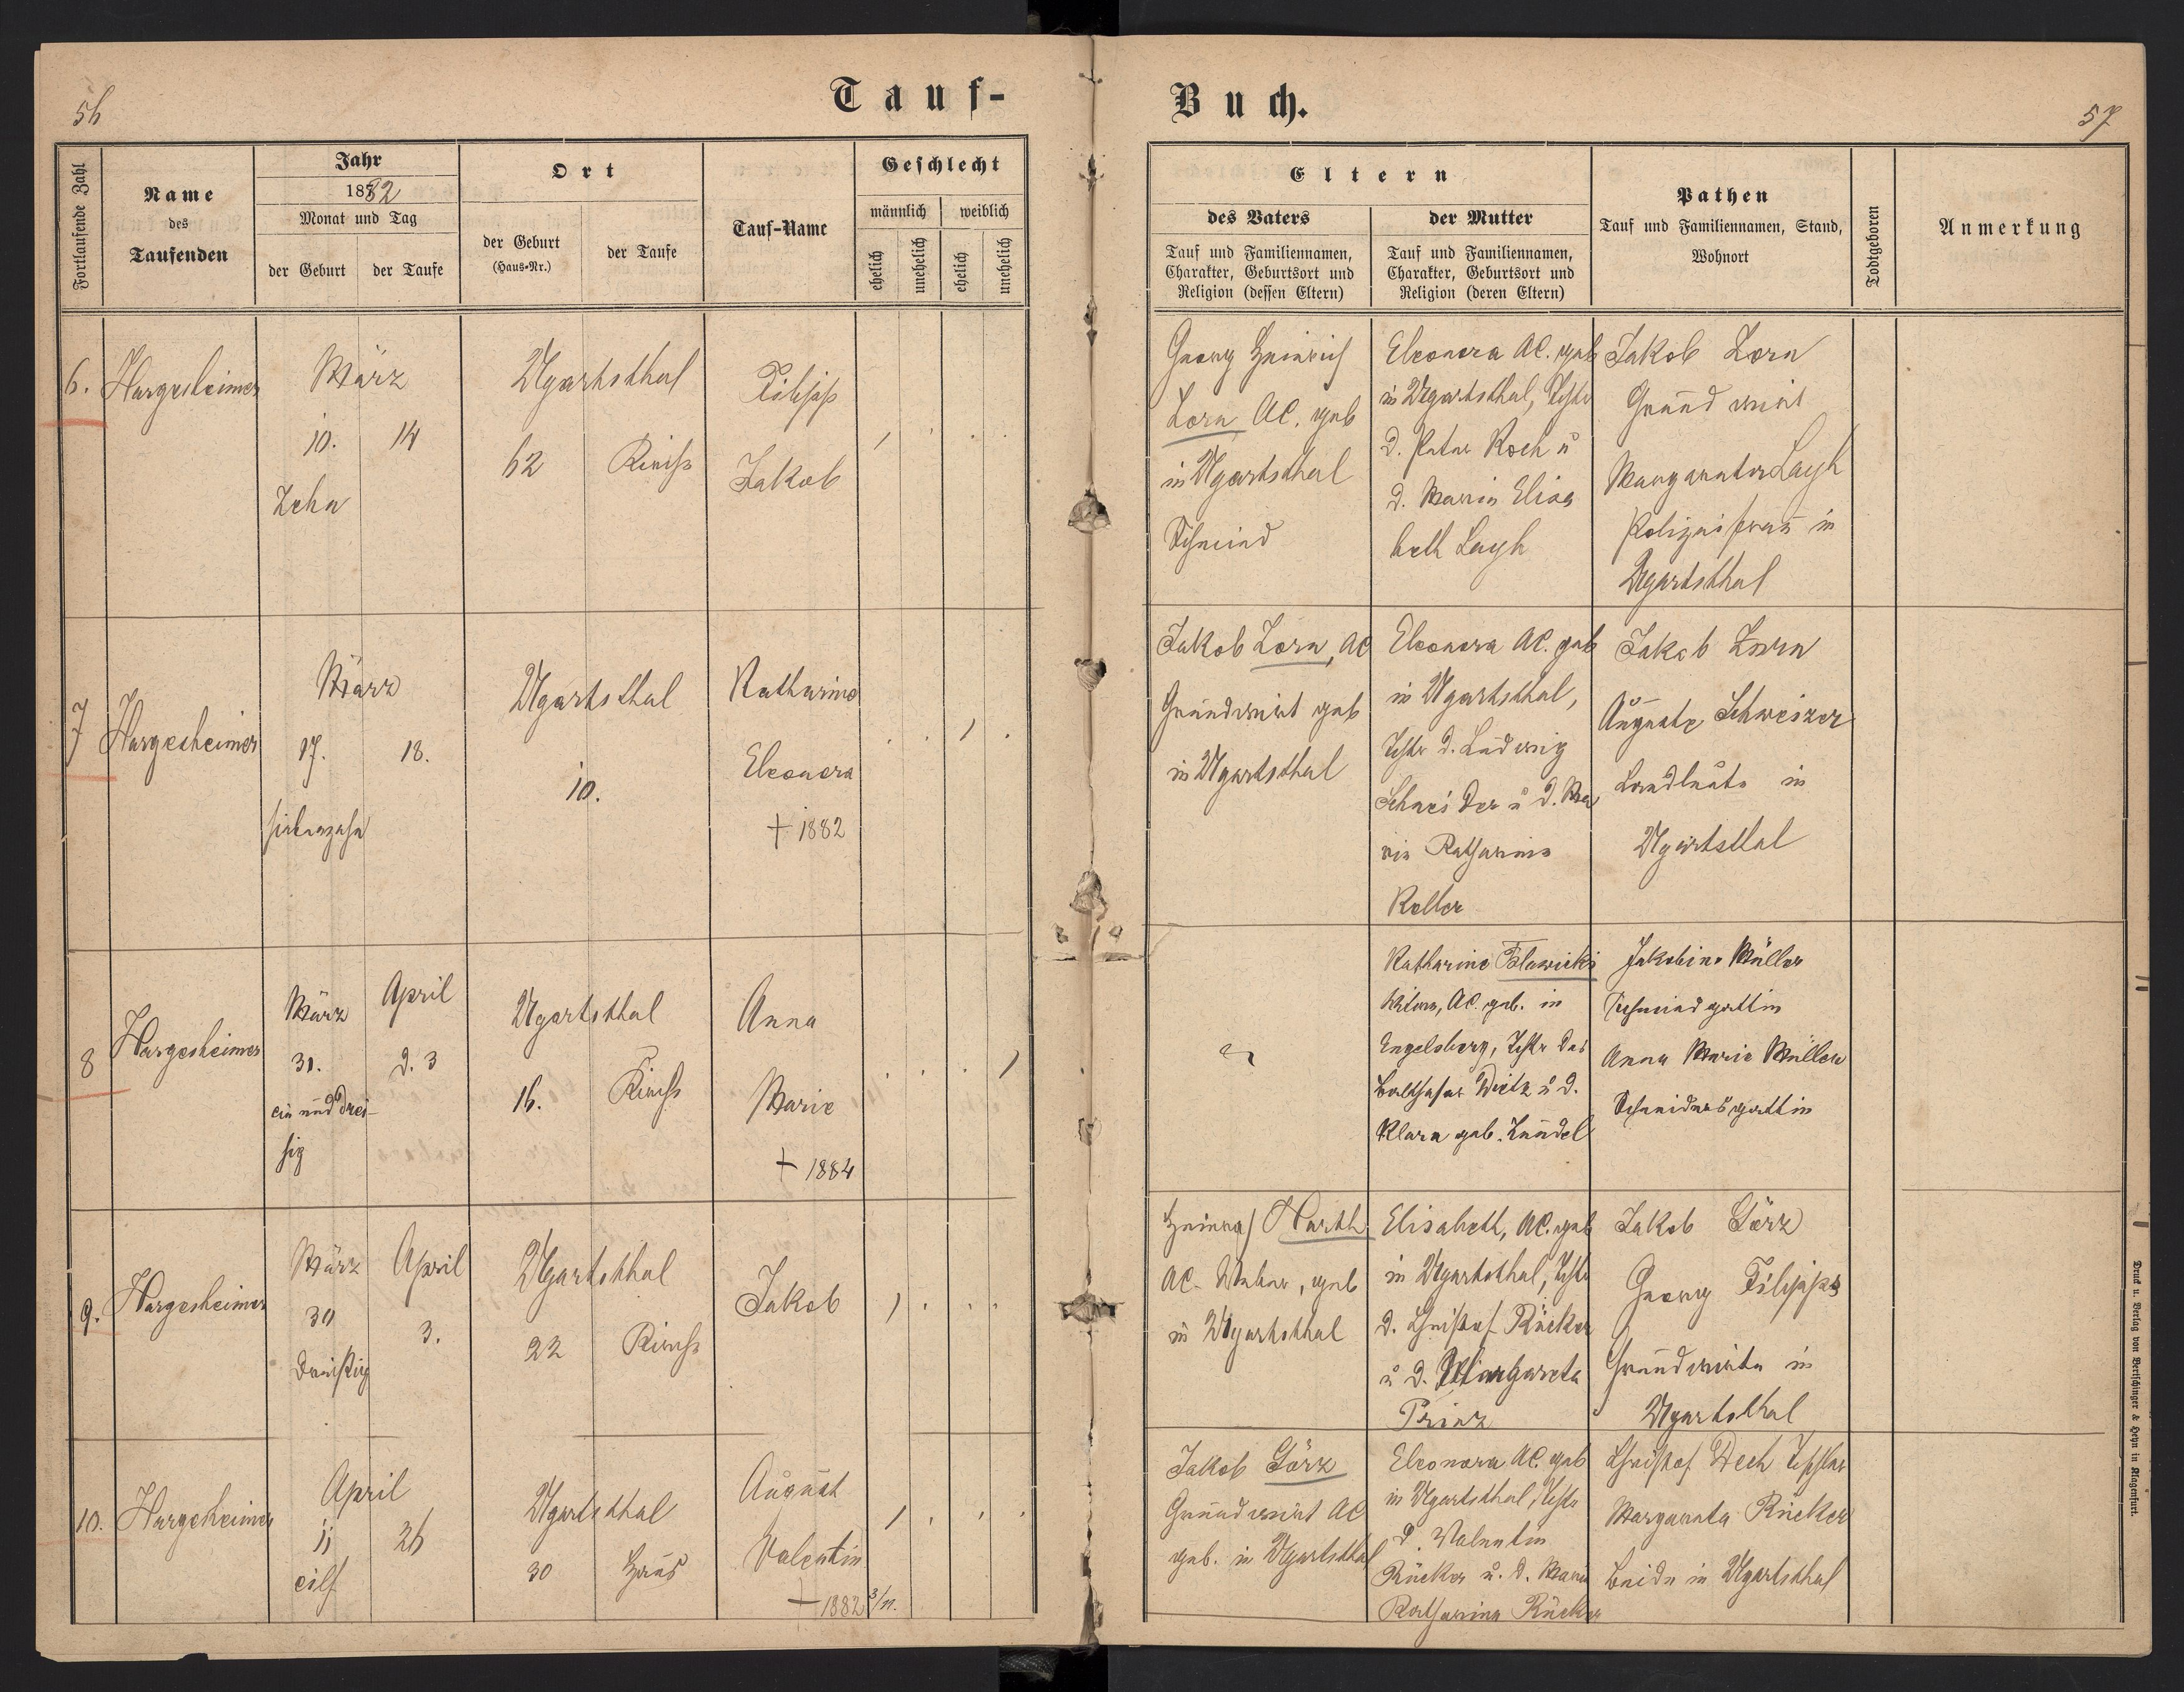 56
Tauf-
Fortlaufende Zahl
Name
des
Taufenden
Jahr
1882
Monat und Tag
der Geburt
der Taufe
Ort
der Geburt
(Haus-Nr.)
der Taufe
Tauf-Name
Geschlecht
männlich
weiblich
ehelich
unehelich
ehelich
unehelich
6. Hargesheimer
März
10. 14
Zehn
Ugartsthal
62 Kirche
Filipp
Jakob
7 Hargesheimer
März
17. 18.
siebenzehn
Ugartsthal
10.
Katharina
Eleonora
† 1882
8 Hargesheimer
März April
31. d. 3
ein und drei-
ßig
Ugartsthal
16. Kirche
Anna
Marie
† 1884
9. Hargesheimer
März April
30 3.
Dreißig
Ugartsthal
22 Kirche
Jakob
10. Hargesheimer
April
11 26
eilf
Ugartsthal
30 Haus
August
Valentin
† 1882 3/11.
Buch.
57
Eltern
des Vaters
Tauf und Familiennamen,
Charakter, Geburtsort und
Religion (dessen Eltern)
der Mutter
Tauf und Familiennamen,
Charakter, Geburtsort und
Religion (deren Eltern)
Pathen
Tauf und Familiennamen, Stand,
Wohnort
Todtgeboren
Anmerkung
Georg Heinrich
Zorn AC. geb
in Ugartsthal
Schmied
Eleonora AC. geb
in Ugartsthal, Tchtr
d. Peter Koch u
d. Marie Elisa
beth Layh
Jakob Zorn
Grundwirt
Margareta Layh
Polizeifrau in
Ugartsthal
Jakob Zorn, AC
Grundwirt geb
in Ugartsthal
Eleonora AC. geb
in Ugartsthal,
Tchtr d. Ludwig
Schneider u d. Ma
rie Katharina
Koller
Jakob Zorn
Auguste Schweizer
Landleute in
Ugartsthal
Katharine
AC. geb. in
Engelsberg, Tchtr des
Balthasar Dietz u d.
Klara geb. Zundel
Jakobine Müller
Schmiedgattin
Anna Marie Müller
Schneidersgattin
Heinrich Harth
AC. Weber, geb
in Ugartsthal
Elisabeth, AC. geb
in Ugartsthal, Tchtr
d. Christof Rücker
u d. Margareta
Prinz
Jakob Görz
Georg Filipps
Grundwirte in
Ugartsthal
Jakob Görz
Grundwirt AC
geb. in Ugartsthal
Eleonora AC. geb
in Ugartsthal, Tchtr
d. Valentin
Rücker u. d. Marie
Katharina Rücker
Christof Dech
Margareta Rücker
Beide in Ugartsthal
Druck u. Verlag von Bertschinger & Heyn in Klagenfurt.